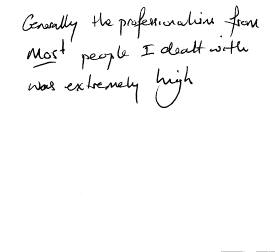 Generally the professionalism from
most people I dealt with
was extremely high